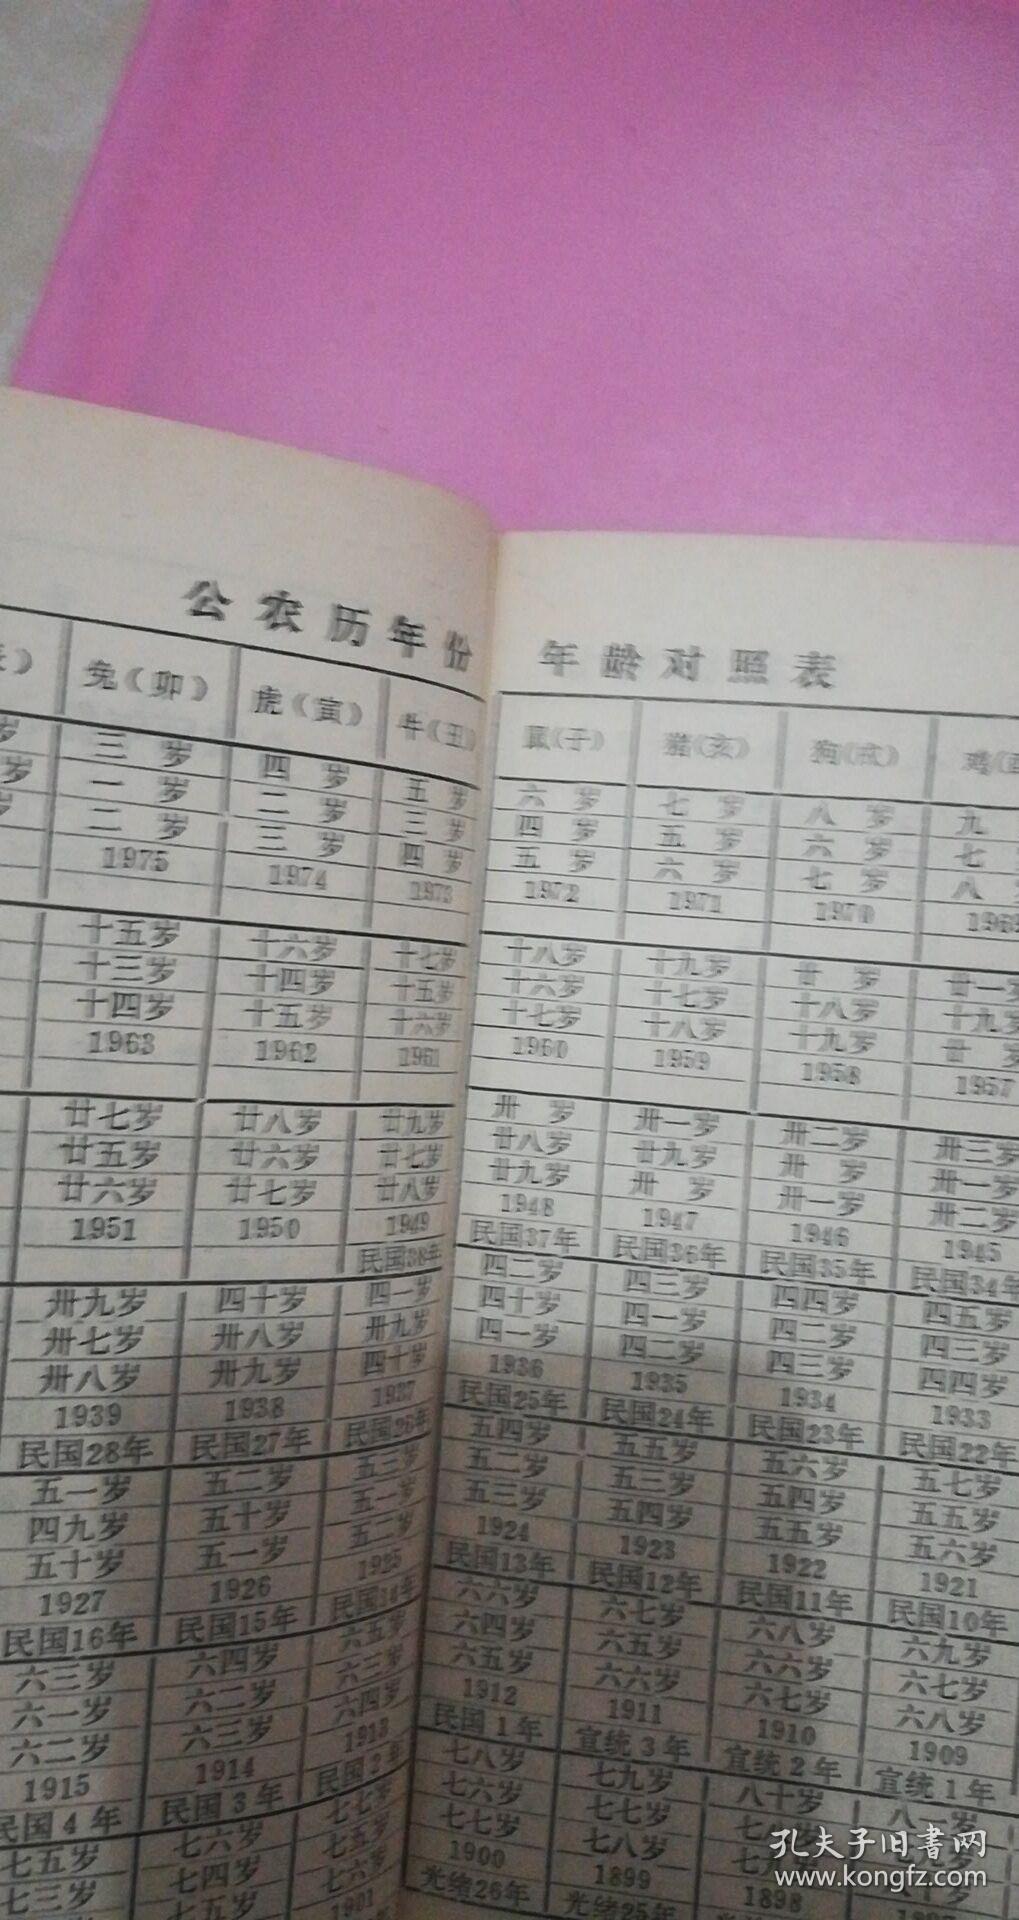 公农历年份 年龄对照表
兔(卯) 虎(寅) 牛(丑) 鼠(子) 猪(亥) 狗(戌)
岁 三岁 四岁 五岁 六岁 七岁 八岁 九
岁 一岁 二岁 三岁 四岁 五岁 六岁 七
岁 二岁 三岁 四岁 五岁 六岁 七岁 八
1975 1974 1973 1972 1971 1970 1969
十五岁 十六岁 十七岁 十八岁 十九岁 廿岁 廿一岁
十三岁 十四岁 十五岁 十六岁 十七岁 十八岁 十九岁
十四岁 十五岁 十六岁 十七岁 十八岁 十九岁 廿岁
1963 1962 1961 1960 1959 1958 1957
廿七岁 廿八岁 廿九岁 卅岁 卅一岁 卅二岁 卅三岁
廿五岁 廿六岁 廿七岁 廿八岁 廿九岁 卅岁 卅一岁
廿六岁 廿七岁 廿八岁 廿九岁 卅岁 卅一岁 卅二岁
1951 1950 1949 1948 1947 1946 1945
民国38年 民国37年 民国36年 民国35年 民国34年
卅九岁 四十岁 四一岁 四二岁 四三岁 四四岁 四五岁
卅七岁 卅八岁 卅九岁 四十岁 四一岁 四二岁 四三岁
卅八岁 卅九岁 四十岁 四一岁 四二岁 四三岁 四四岁
1939 1938 1937 1936 1935 1934 1933
民国28年 民国27年 民国26年 民国25年 民国24年 民国23年 民国22年
五一岁 五二岁 五三岁 五四岁 五五岁 五六岁 五七岁
四九岁 五十岁 五一岁 五二岁 五三岁 五四岁 五五岁
五十岁 五一岁 五二岁 五三岁 五四岁 五五岁 五六岁
1927 1926 1925 1924 1923 1922 1921
民国16年 民国15年 民国14年 民国13年 民国12年 民国11年 民国10年
六三岁 六四岁 六五岁 六六岁 六七岁 六八岁 六九岁
六一岁 六二岁 六三岁 六四岁 六五岁 六六岁 六七岁
六二岁 六三岁 六四岁 六五岁 六六岁 六七岁 六八岁
1915 1914 1913 1912 1911 1910 1909
民国4年 民国3年 民国2年 民国1年 宣统3年 宣统2年 宣统1年
七五岁 七六岁 七七岁 七八岁 七九岁 八十岁 八一岁
七三岁 七四岁 七五岁 七六岁 七七岁
七五岁 七六岁 七七岁 七八岁
1901 1900 1899 1898
光绪26年 光绪25年
孔夫子旧书网
www.kongfz.com